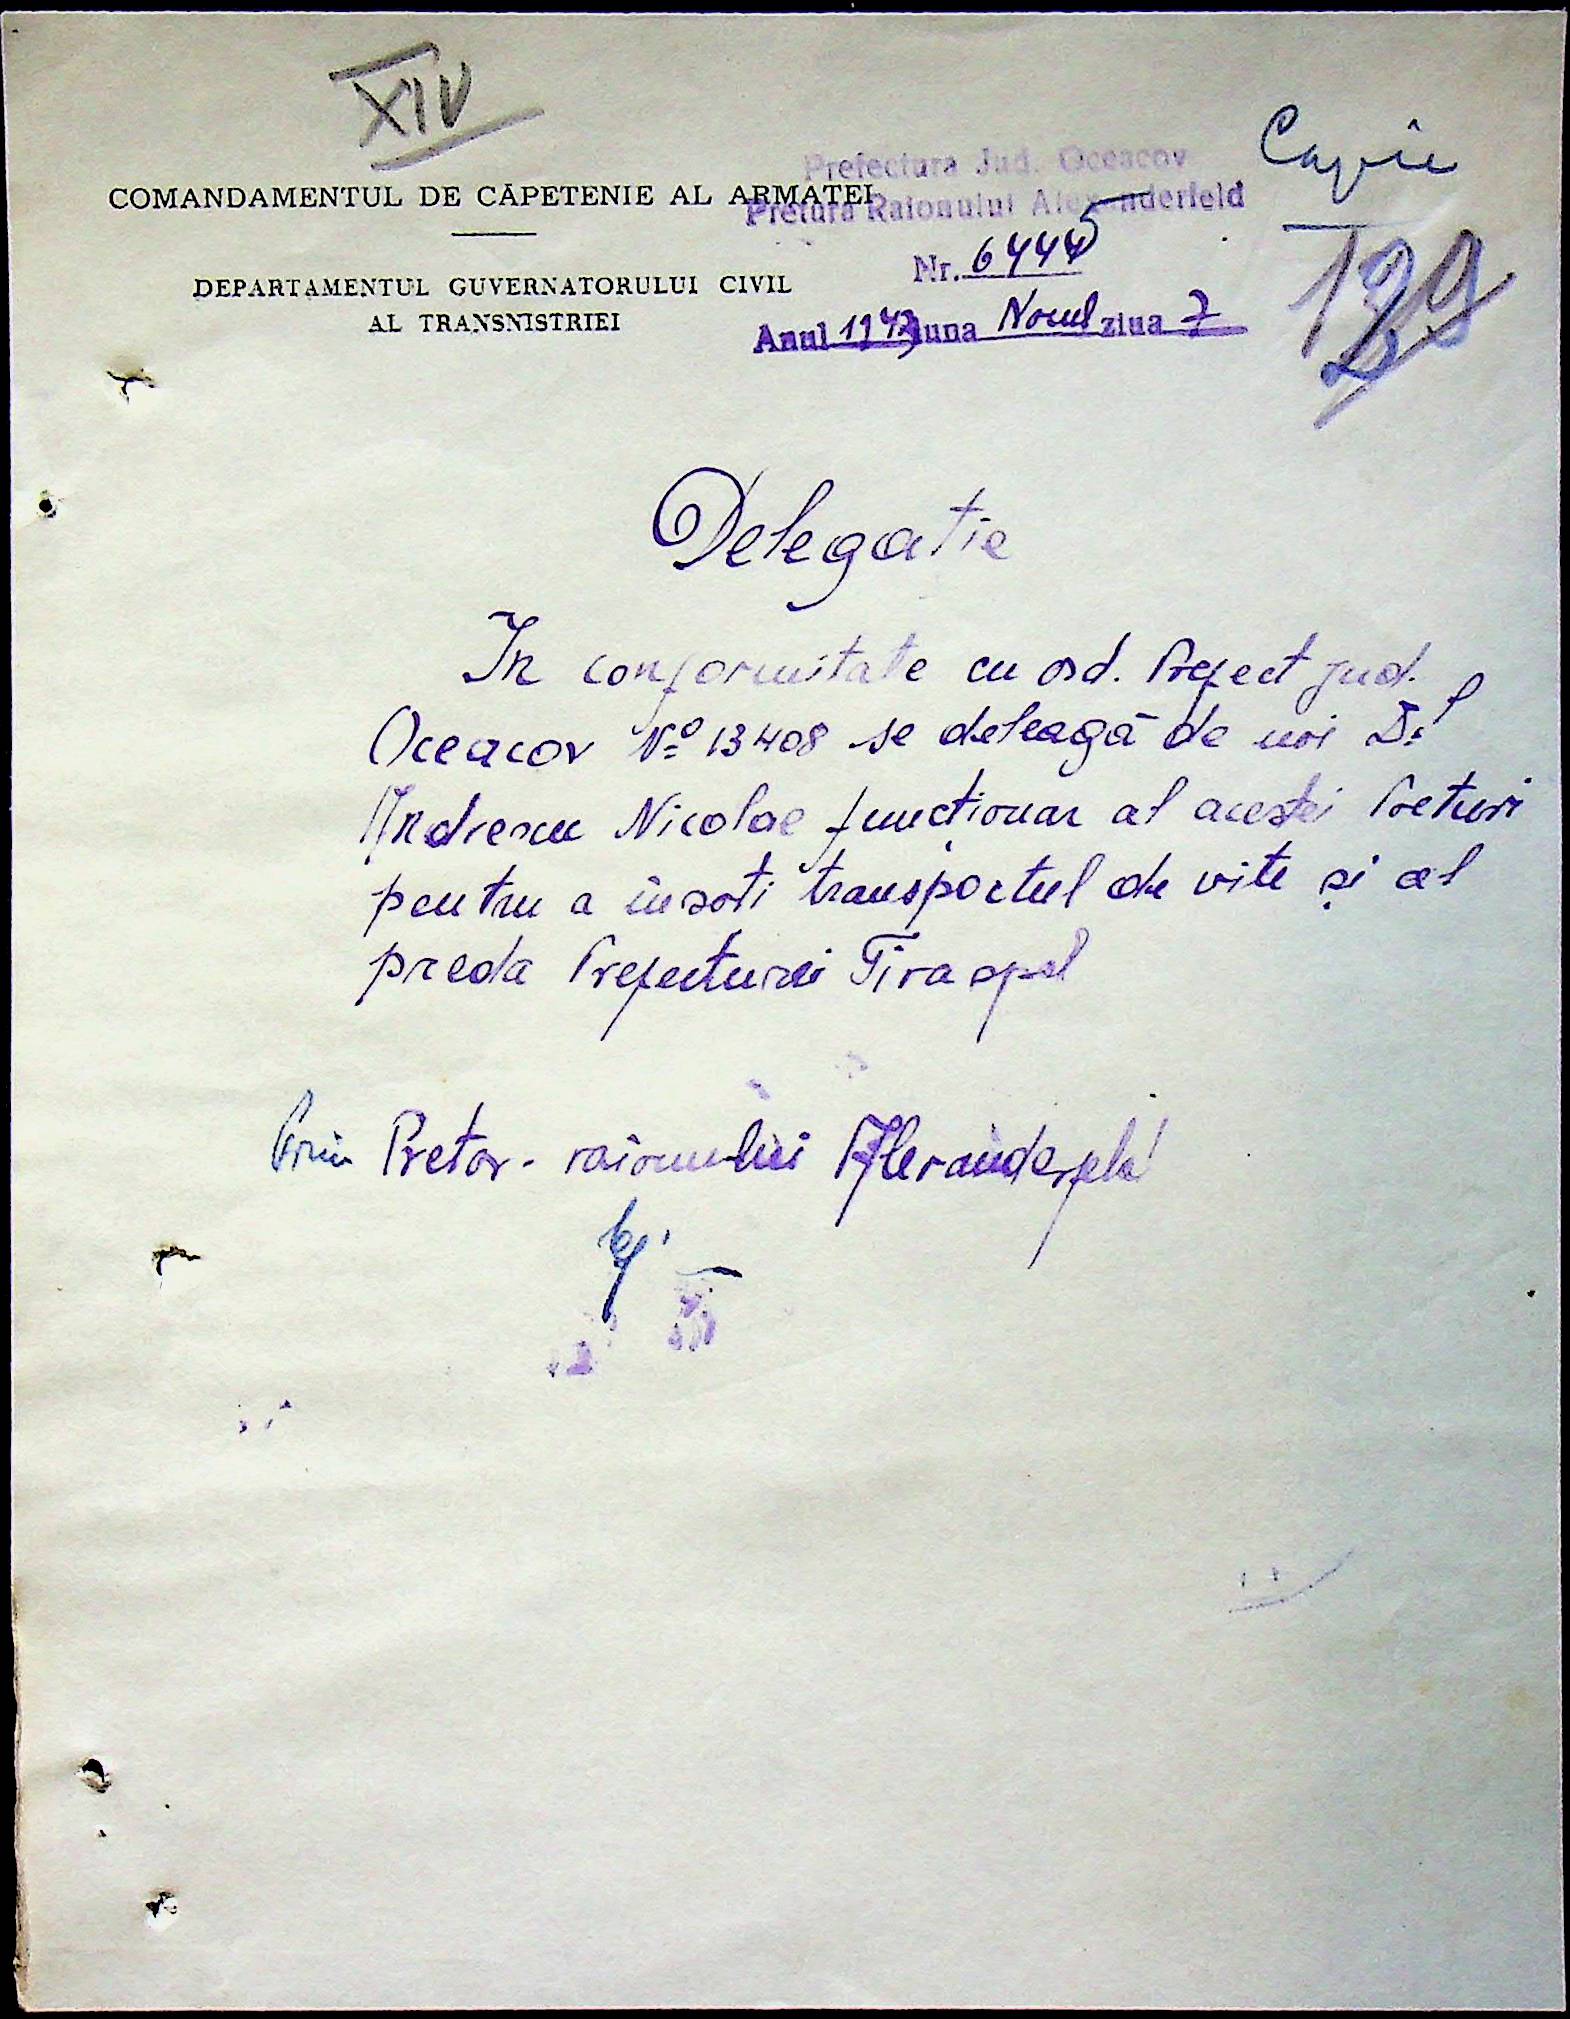 XIV
Copie
COMANDAMENTUL DE CĂPETENIE AL ARMATEI
DEPARTAMENTUL GUVERNATORULUI CIVIL
AL TRANSNISTRIEI
Prefectura Jud. Oceacov
Pretura Raionului Alexanderfeld
Nr. 64445
Anul 1943 luna Noul ziua 7
Delegatie
In conformitate cu ord. Prefect jud.
Oceacov No 13408 se deleagă de noi Dl
Andrescu Nicolae funcționar al acestei Preturi
pentru a însoti transportul de vite și al
preda Prefecturei Tiraspol
Prim Pretor - raionului Alexanderfeld